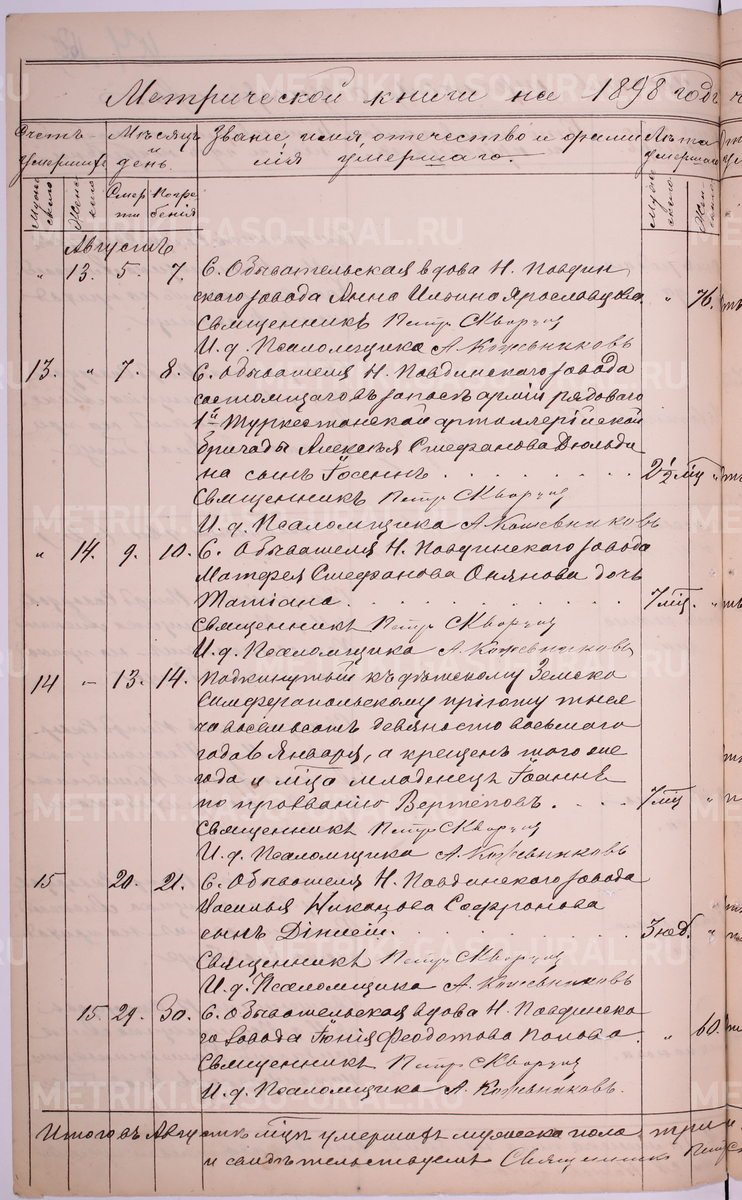 Метрической книги на 1898 годъ
Счетъ умершихъ
Мѣсяцъ и день.
Званіе, имя, отечество и фами
лія умершаго.
Лѣта умершаго
Мужескаго
Женскаго
Смерти
Погребенія
Мужескаго
Женскаго
Августъ
" 13. 5. 7. С. Обывательская вдова Н. Павдин
скаго завода Анна Ильина Ярославцова. " 76.
Священникъ Петръ Скворцовъ
И. д. Псаломщика А. Кожевниковъ
13. " 7. 8. С. обывателя Н. Павдинскаго завода
состоящаго въ запасѣ арміи рядоваго
1й Туркестанской артиллерійской
бригады Алексѣя Стефанова Дюльди
на сынъ Іосифъ. 2½ мѣц "
Священникъ Петръ Скворцовъ
И. д. Псаломщика А Кожевниковъ
" 14. 9. 10. С. Обывателя Н. Павдинскаго завода
Матфея Стефанова дочь
Татіана. 7 мѣц. "
Священникъ Петръ Скворцовъ
И. д. Псаломщика А. Кожевниковъ
14 – 13. 14. Подкинутый къ дѣтскому Земско
Симферопольскому пріюту тыся
ча восемьсотъ девяносто восьмаго
года 6 Января, а крещенъ того же
года и мѣца младенецъ Іоаннъ
по прозванію Вертеповъ. 7 мѣц "
Священникъ Петръ Скворцовъ
И. д. Псаломщика А. Кожевниковъ
15 20. 21. С. Обывателя Н. Павдинскаго завода
Василья Софронова
сынъ 3 "
Священникъ Петръ Скворцовъ
И. д. Псаломщика А. Кожевниковъ
15. 29. 30. С. обывательская вдова Н. Павдинска
го завода Феодотова Попова. " 60.
Священникъ Петръ Скворцовъ
И. д. Псаломщика А. Кожевниковъ.
Итого въ Августѣ мѣцѣ умершихъ мужеска пола три
и свидѣтельствуемъ Священникъ Петръ
METRIKI.GASO-URAL.RU